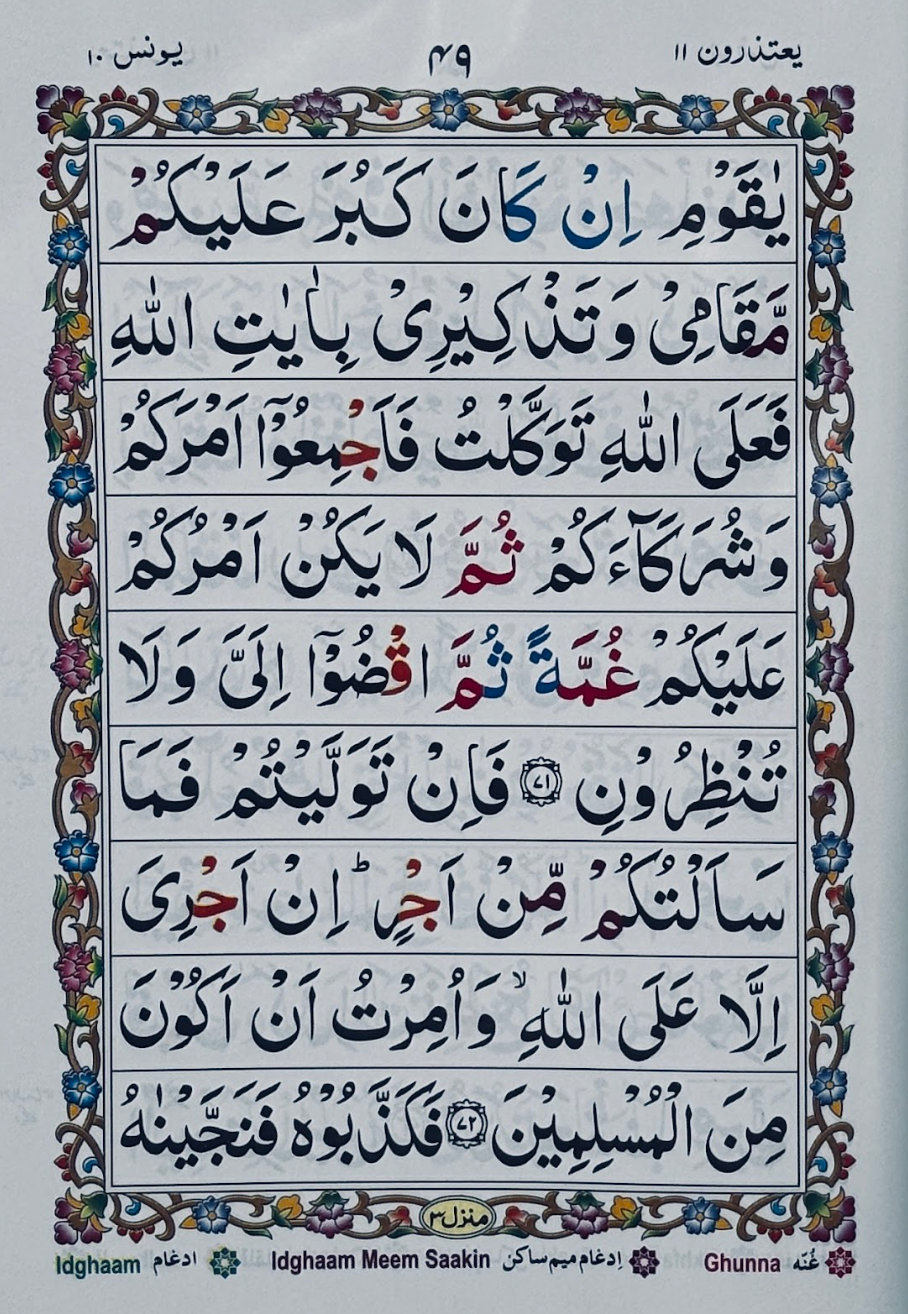 یعتذرون ۱۱ ۴۹ یونس ۱۰
یٰقَوْمِ اِنْ كَانَ كَبُرَ عَلَیْكُمْ
مَّقَامِیْ وَ تَذْكِیْرِیْ بِاٰیٰتِ اللّٰهِ
فَعَلَی اللّٰهِ تَوَكَّلْتُ فَاَجْمِعُوْۤا اَمْرَكُمْ
وَ شُرَكَآءَكُمْ ثُمَّ لَا یَكُنْ اَمْرُكُمْ
عَلَیْكُمْ غُمَّةً ثُمَّ اقْضُوْۤا اِلَیَّ وَ لَا
تُنْظِرُوْنِ ﴿۷۱﴾ فَاِنْ تَوَلَّیْتُمْ فَمَا
سَاَلْتُكُمْ مِّنْ اَجْرٍ ؕ اِنْ اَجْرِیَ
اِلَّا عَلَی اللّٰهِ ۙ وَ اُمِرْتُ اَنْ اَكُوْنَ
مِنَ الْمُسْلِمِیْنَ ﴿۷۲﴾ فَكَذَّبُوْهُ فَنَجَّیْنٰهُ
منزل ۳
Ghunna غُنّه Idghaam Meem Saakin اِدغام میم ساکن Idghaam ادغام